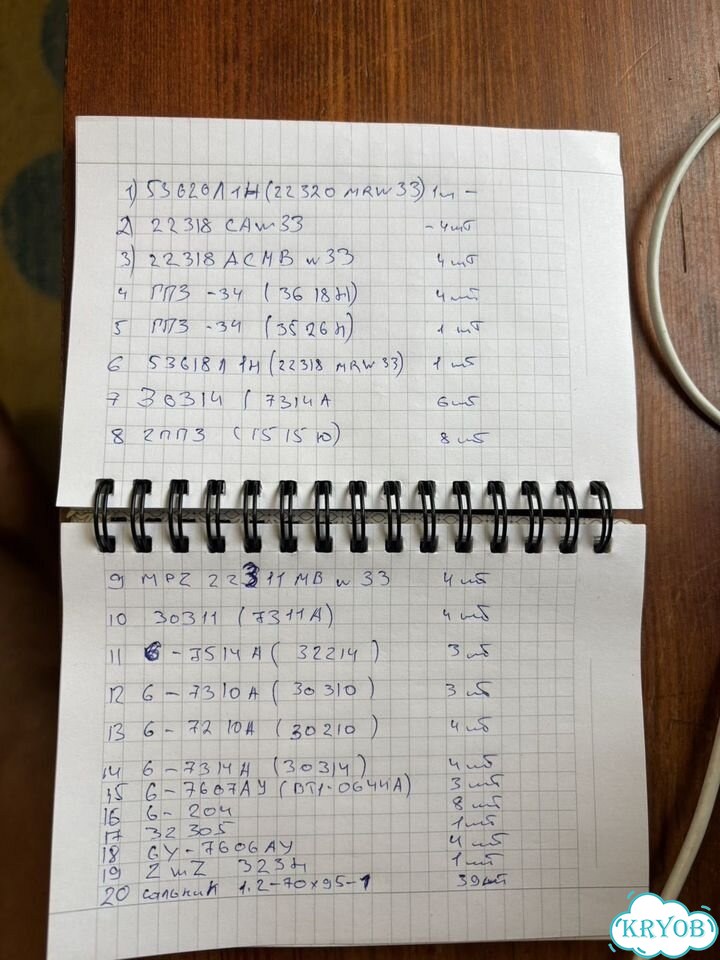 1) 53620Л1Н (22320 MRW33) 1ш -
2) 22318 CAW33 - 4шт
3) 22318 АСМВ w33 4шт
4 ГПЗ -34 (3618Н) 4шт
5 ГПЗ -34 (3526Н) 1шт
6 53618Л1Н (22318 MRW33) 1шт
7 30314 ( 7314А 6шт
8 2ГПЗ (1515Ю) 8шт
9 MPZ 22311 MB w33 4шт
10 30311 (7311А) 4шт
11 6-7514А (32214) 3шт
12 6-7310А (30310) 3шт
13 6-7210А (30210) 4шт
14 6-7314А (30314) 4шт
15 6-7607АУ (ВТ1-0644А) 3шт
16 6-204 8шт
17 32305 1шт
18 6У-7606АУ 4шт
19 ZWZ 323Н 1шт
20 сальник 1.2-70х95-1 39шт
KRYOB